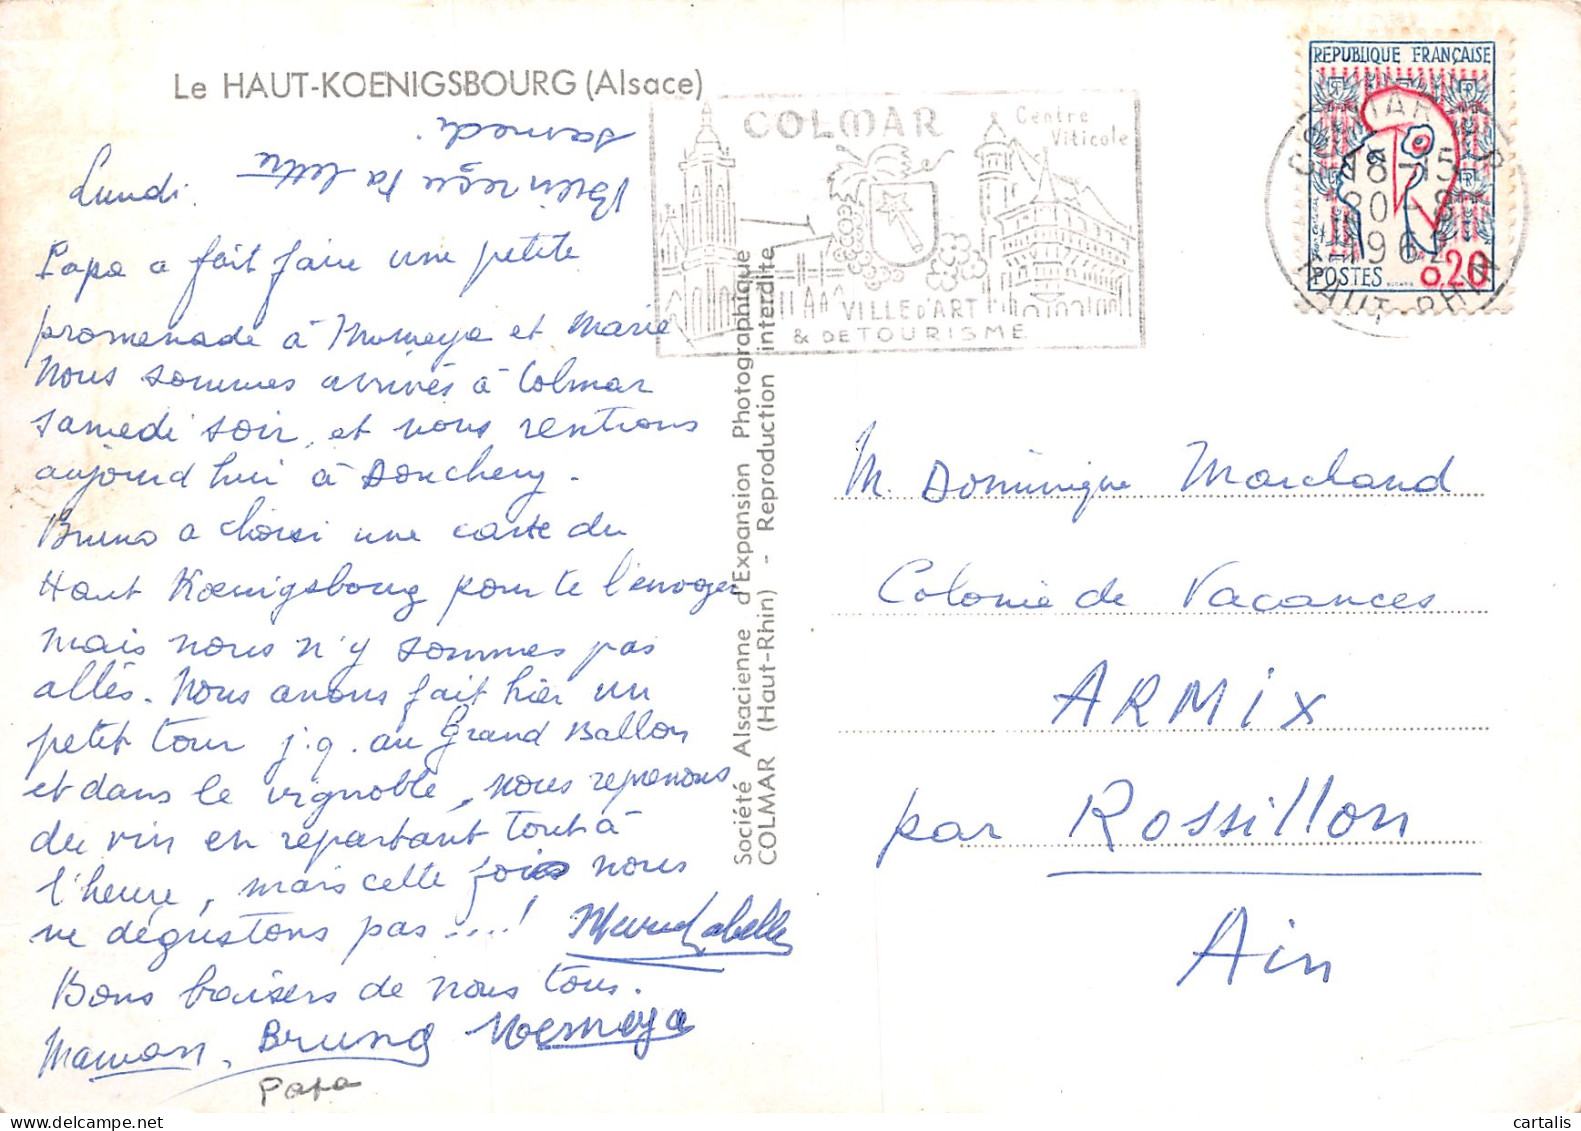 Le HAUT-KOENIGSBOURG (Alsace)
Bien reçu ta lettre
samedi.
Lundi.
Papa a fait faire une petite
promenade à Momeya et Marie
Nous sommes arrivés à Colmar
samedi soir, et nous rentrons
aujourd'hui à Donchery.
Bruno a choisi une carte du
Haut Kœnigsbourg pour te l'envoyer
mais nous n'y sommes pas
allés. Nous avons fait hier un
petit tour j.q. au Grand Ballon
et dans le vignoble, nous reprenons
du vin en repartant tout à
l'heure, mais cette fois nous
ne dégustons pas....!
Bons baisers de nous tous.
Maman. Bruno
Papa
Société Alsacienne d'Expansion Photographique
COLMAR (Haut-Rhin) - Reproduction interdite
COLMAR
Centre
Viticole
VILLE D'ART
& DE TOURISME
REPUBLIQUE FRANÇAISE
POSTES
0.20
COLMAR R.P.
18-15
20-8
1962
HAUT-RHIN
M. Dominique Marchand
Colonie de Vacances
ARMIX
par Rossillon
Ain
cartalis